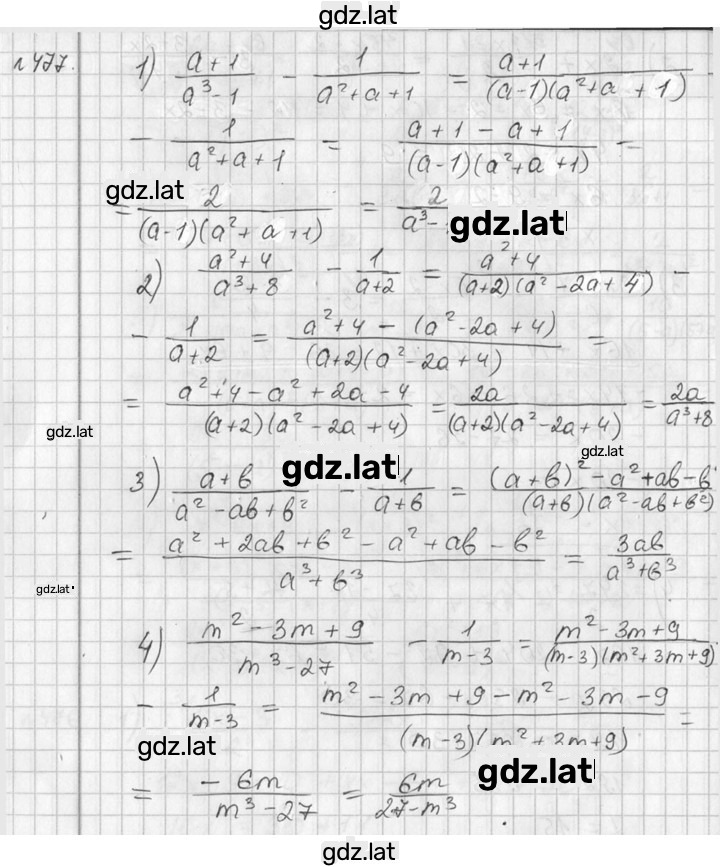 gdz.lat
№477. 1) (a+1)/(a³-1) - 1/(a²+a+1) = (a+1)/((a-1)(a²+a+1))
- 1/(a²+a+1) = (a+1-a+1)/((a-1)(a²+a+1)) =
gdz.lat
= 2/((a-1)(a²+a+1)) = 2/(a³-
gdz.lat
2) (a²+4)/(a³+8) - 1/(a+2) = (a²+4)/((a+2)(a²-2a+4)) -
- 1/(a+2) = (a²+4-(a²-2a+4))/((a+2)(a²-2a+4)) =
= (a²+4-a²+2a-4)/((a+2)(a²-2a+4)) = 2a/((a+2)(a²-2a+4)) = 2a/(a³+8)
gdz.lat
gdz.lat
gdz.lat
3) (a+b)/(a²-ab+b²) - 1/(a+b) = ((a+b)²-a²+ab-b)/((a+b)(a²-ab+b²))
= (a²+2ab+b²-a²+ab-b²)/(a³+b³) = 3ab/(a³+b³)
gdz.lat
4) (m²-3m+9)/(m³-27) - 1/(m-3) = (m²-3m+9)/((m-3)(m²+3m+9))
- 1/(m-3) = (m²-3m+9-m²-3m-9)/((m-3)(m²+3m+9)) =
gdz.lat
= -6m/(m³-27) = 6m/(27-m³)
gdz.lat
gdz.lat